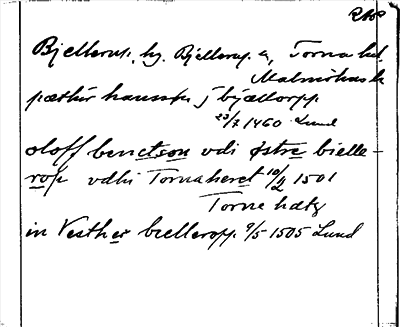 Bjellerup, by. Bjellerup s, Torna hd.
Malmöhus l.
pæther hansson j biællorpp
23/7 1460 Lund
oloff benctson vdi østre bielle-
rop vdhi Tornaheret 10/2 1501
Torne hdtz
in Vesther bielleropp 9/5 1505 Lund